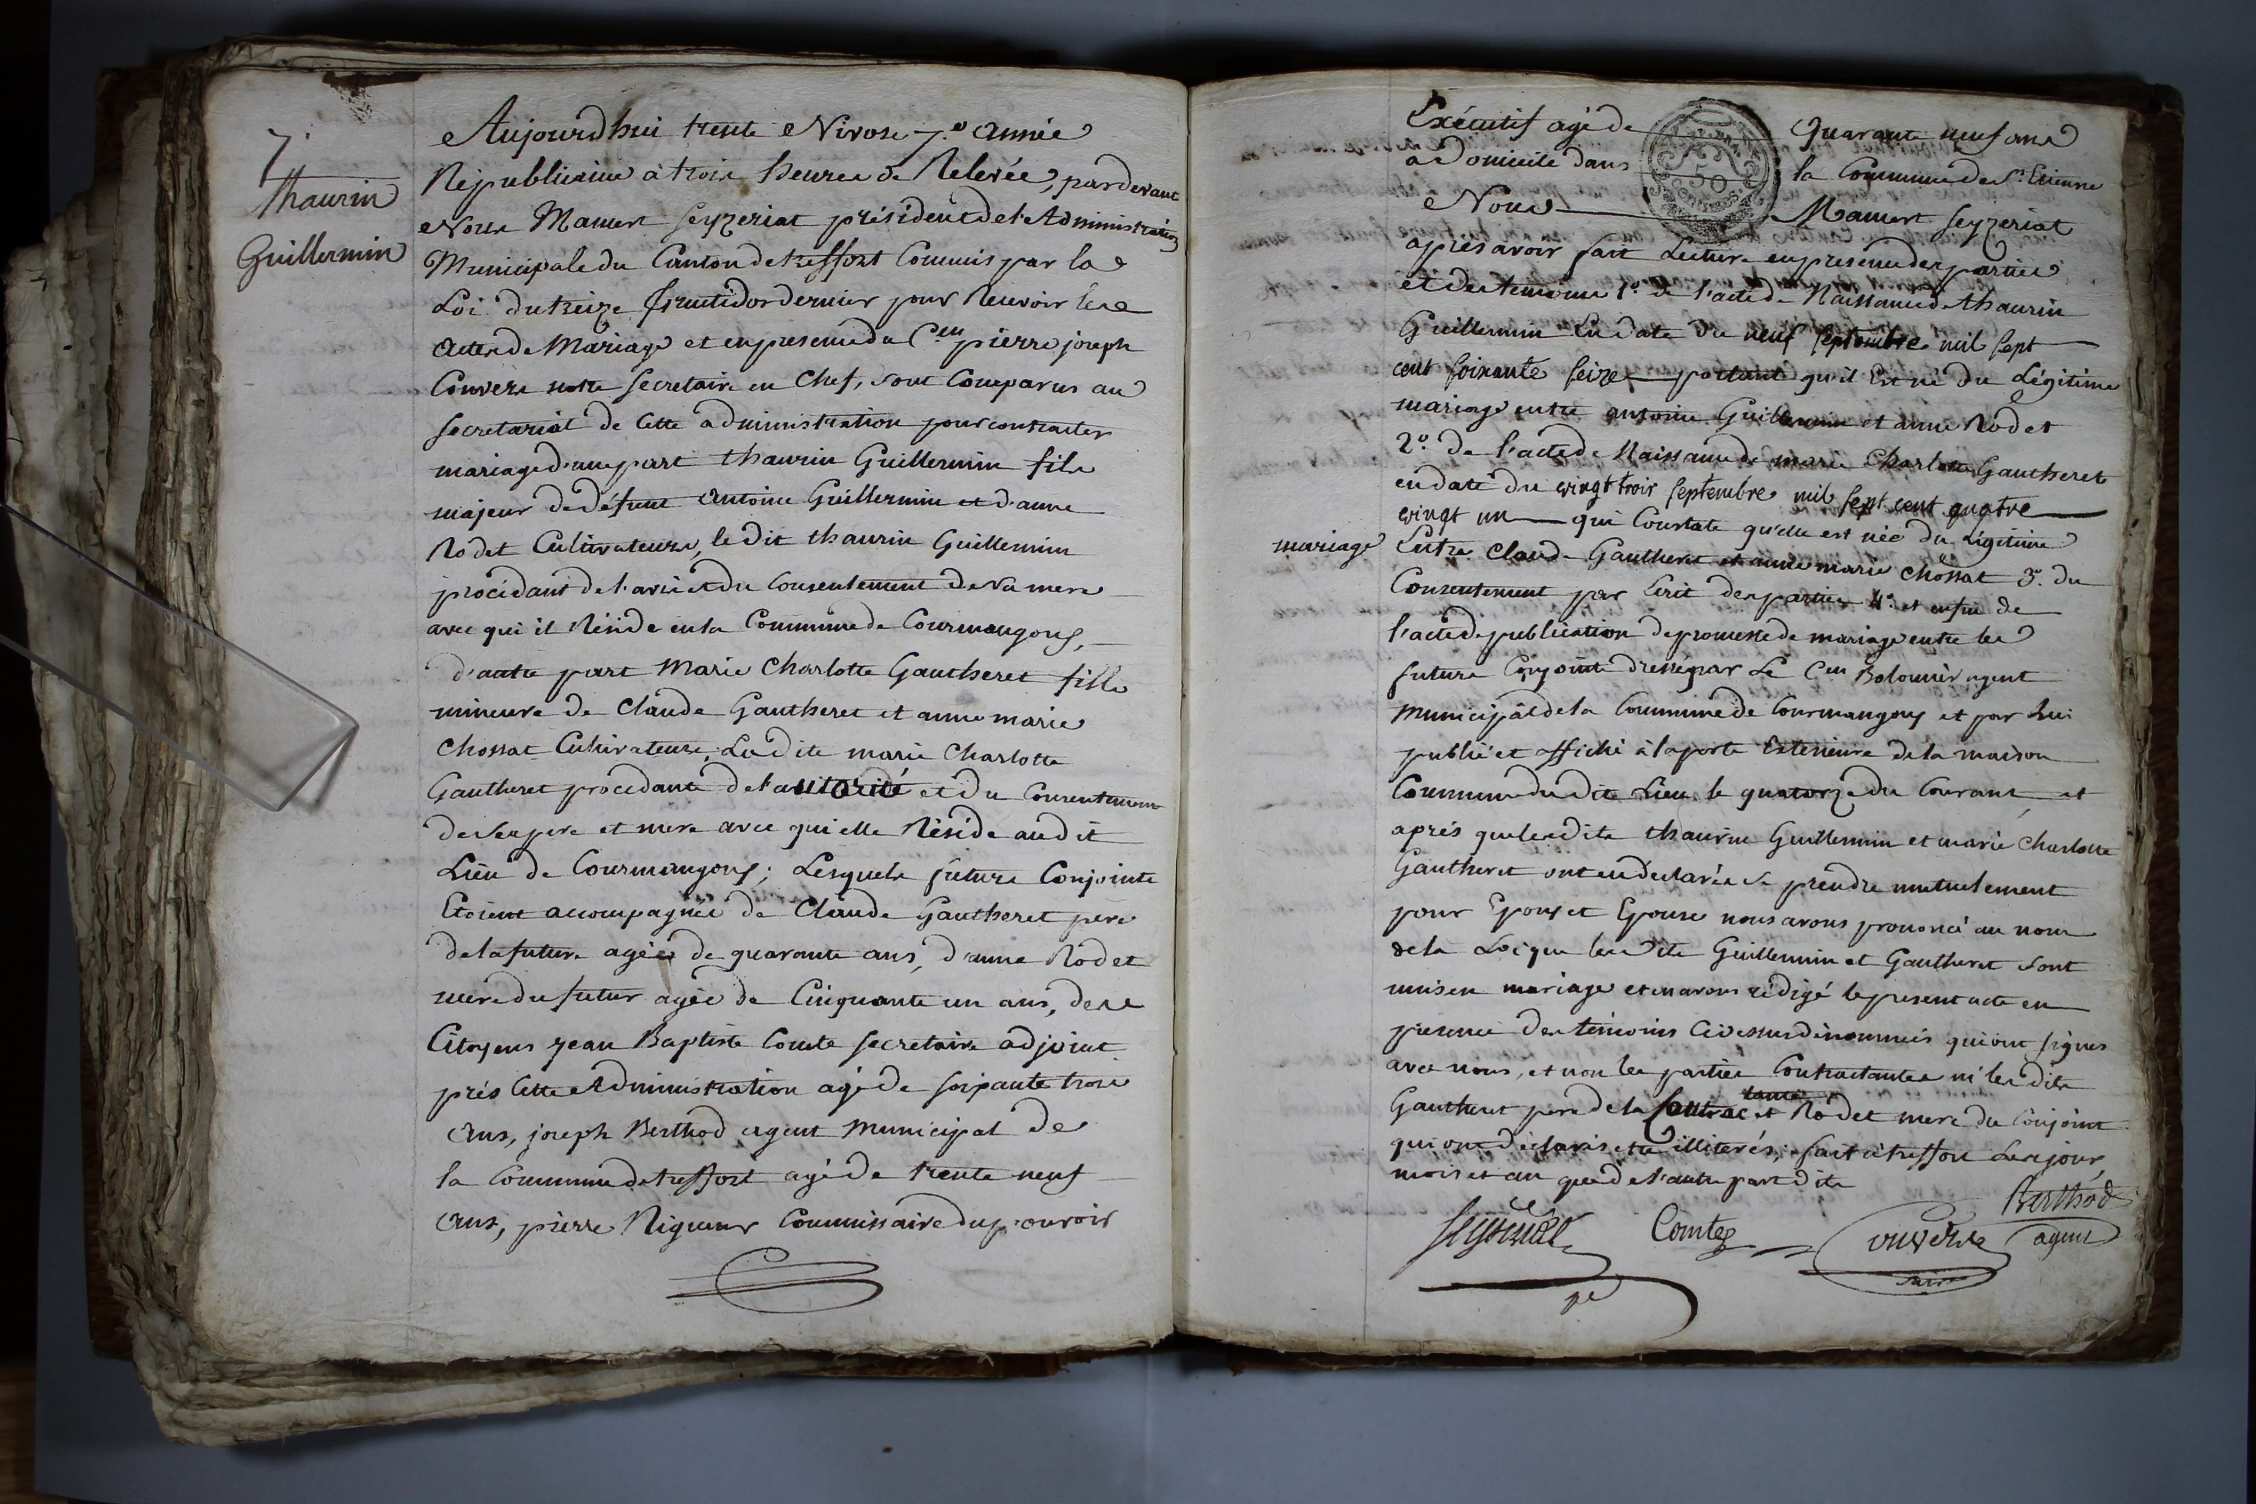 7.
Thaurin
Guillermin
Aujourd'hui trente Nivose 7.e année
Républicaine à trois heures de Relevée, pardevant
Nous Mamert Seyzeriat président de l'Administration
Municipale du Canton de treffort Commis par la
Loi du treize fructidor dernier pour Recevoir les
actes de Mariage et en presence du C.en pierre joseph
Convers notre Secretaire en Chef, sont Comparus au
Secretariat de Cette administration pour contracter
mariage d'une part thaurin Guillermin fils
majeur de défunt Antoine Guillermin et d'anne
Rodet Cultivateurs, le dit thaurin Guillermin
procédant de l'avis et du Consentement de sa mere
avec qui il Réside en la Commune de Courmangoux,
d'autre part Marie Charlotte Gautheret fille
mineure de Claude Gautheret et anne marie
Chossat Cultivateurs, La dite marie Charlotte
Gautheret procedante de l'autorité et du Consentement
de ses pere et mere avec qui elle Réside au dit
Lieu de Courmangoux; Lesquels futurs Conjoints
Etoient accompagnés de Claude Gautheret pere
de la future agée de quarante ans, d'anne Rodet
mere du futur agée de Cinquante un ans, des
Citoyens jean Baptiste Comte Secretaire adjoint
près Cette Administration agé de soixante trois
ans, joseph Berthod agent Municipal de
la Commune de treffort agé de trente neuf
ans, pierre Commissaire du pouvoir
Exécutif agé de Quarante neuf ans
a Domicile dans la Commune de St. Etienne
50
Nous Mamert Seyzeriat
après avoir fait Lecture en presence des parties
et des temoins 1.o de l'acte de Naissance de thaurin
Guillermin En date du neuf septembre mil sept
cent soixante seize portant qu'il Est né du Légitime
mariage entre antoine Guillermin et anne Rodet
2.o de l'acte de Naissance de marie Charlotte Gautheret
en date du vingt trois septembre mil sept cent quatre
vingt un qui Constate qu'elle est née du Légitime
mariage Entre Claude Gautheret et anne marie Chossat 3.o du
Consentement par Ecrit des parties 4.o et enfin de
l'acte de publication de promesse de mariage entre les
futurs Conjoints dressé par Le Cen agent
Municipal de la Commune de Courmangoux et par Lui
publié et affiché à la porte Exterieure de la maison
Commune du dit Lieu le quatorze du Courant, et
après que lesdits thaurin Guillermin et marie Charlotte
Gautheret ont eu déclarés se prendre mutuelement
pour Epoux et Epouse nous avons prononcé au nom
de la Loi que les dits Guillermin et Gautheret sont
unis en mariage et en avons rédigé le present acte en
presence des témoins Cidessus dénommés qui ont signés
avec nous, et non les parties Contractantes ni les dits
Gautheret pere de la et Rodet mere du Conjoint
qui ont déclarés etre illiterés; fait à treffort Les jour,
mois et an que de l'autre part dits
Seyzeriat
pt
Comte
Convers
Berthod
agent